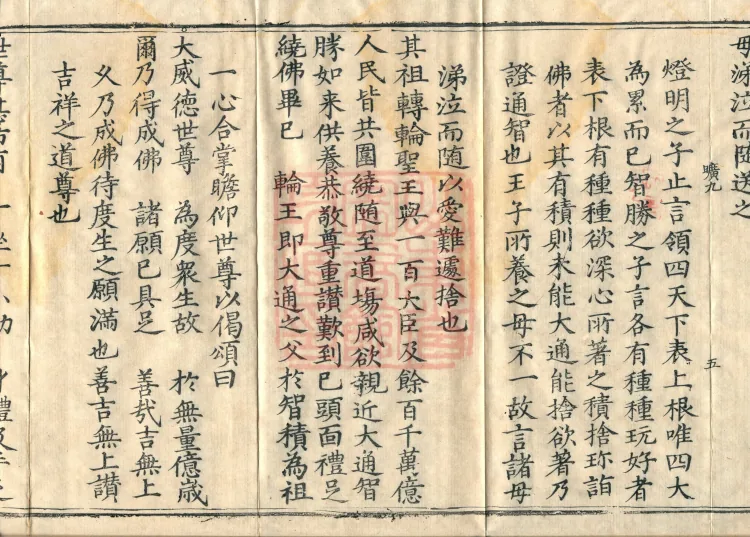 母涕泣而隨送之
曠九
五
燈明之子止言領四天下表上根唯四大
為累而已智勝之子言各有種種玩好者
表下根有種種欲深心所著之積捨珎詣
佛者以其有積則未能大通能捨欲著乃
證通智也王子所養之母不一故言諸母
涕泣而隨以愛難遽捨也
其祖轉輪聖王與一百大臣及餘百千萬億
人民皆共圍繞隨至道塲咸欲親近大通智
勝如来供養恭敬尊重讃歎到已頭面禮足
繞佛畢已 輪王即大通之父扵智積為祖
一心合掌瞻仰世尊以偈頌曰
大威德世尊 為度衆生故 扵無量億歲
爾乃得成佛 諸願已具足 善哉吉無上
乆乃成佛待度生之願滿也善吉無上讃
吉祥之道尊也